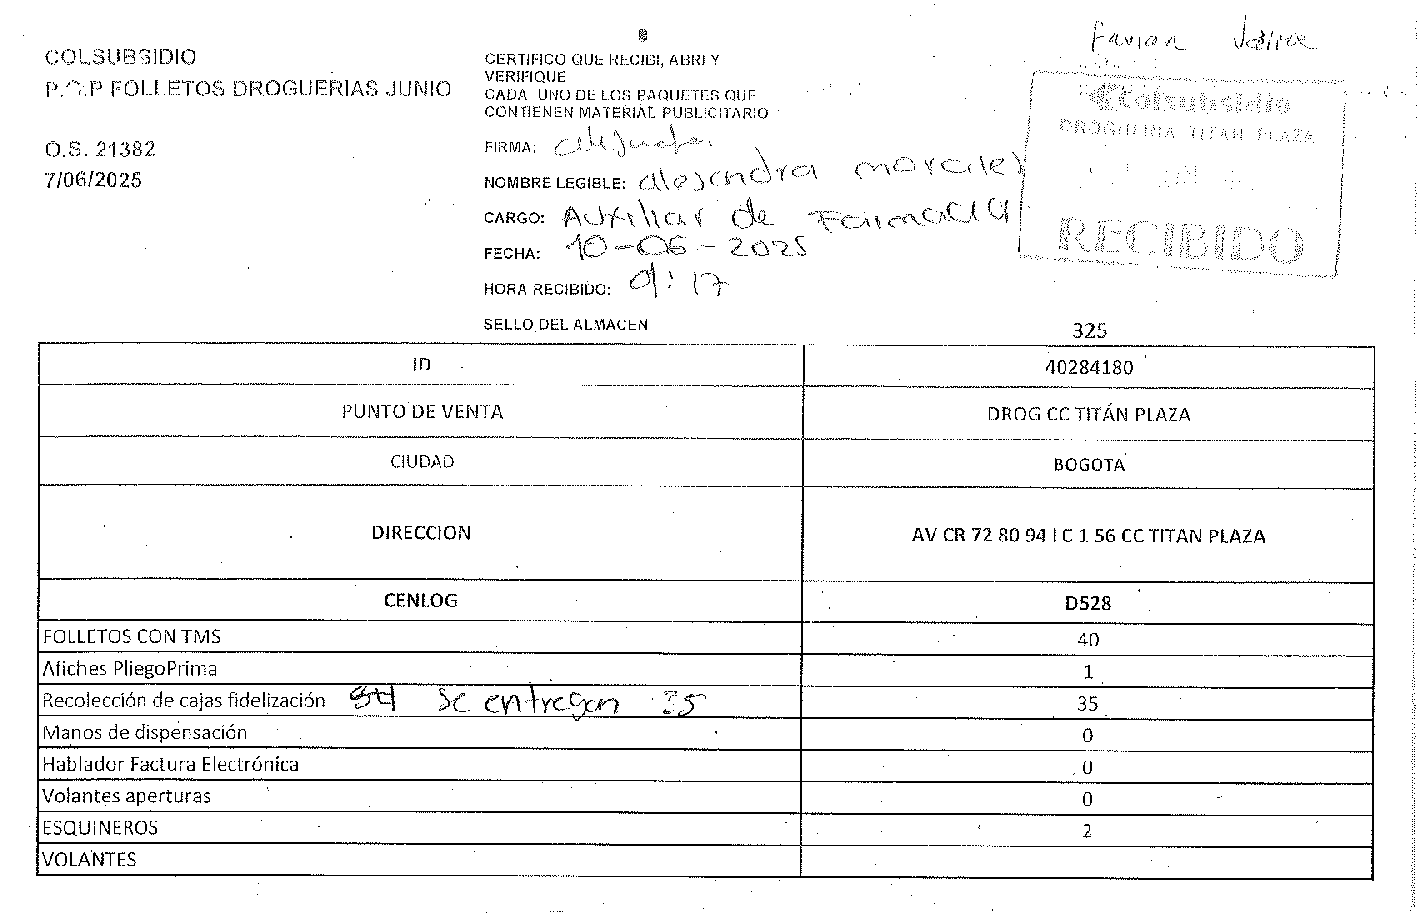 COLSUBSIDIO
P.O.P FOLLETOS DROGUERIAS JUNIO
O.S. 21382
7/06/2025
CERTIFICO QUE RECIBI, ABRI Y
VERIFIQUE
CADA UNO DE LOS PAQUETES QUE
CONTIENEN MATERIAL PUBLICITARIO
FIRMA:
NOMBRE LEGIBLE: alejandra morales
CARGO: Auxiliar de Farmacia
FECHA: 10-06-2025
HORA RECIBIDO: 9:17
SELLO DEL ALMACEN
Colsubsidio
DROGUERIA TITAN PLAZA
RECIBIDO
325
ID 40284180
PUNTO DE VENTA DROG CC TITÁN PLAZA
CIUDAD BOGOTA
DIRECCION AV CR 72 80 94 LC 1 56 CC TITAN PLAZA
CENLOG D528
FOLLETOS CON TMS 40
Afiches PliegoPrima 1
Recolección de cajas fidelización se entregan 35 35
Manos de dispensación 0
Hablador Factura Electrónica 0
Volantes aperturas 0
ESQUINEROS 2
VOLANTES